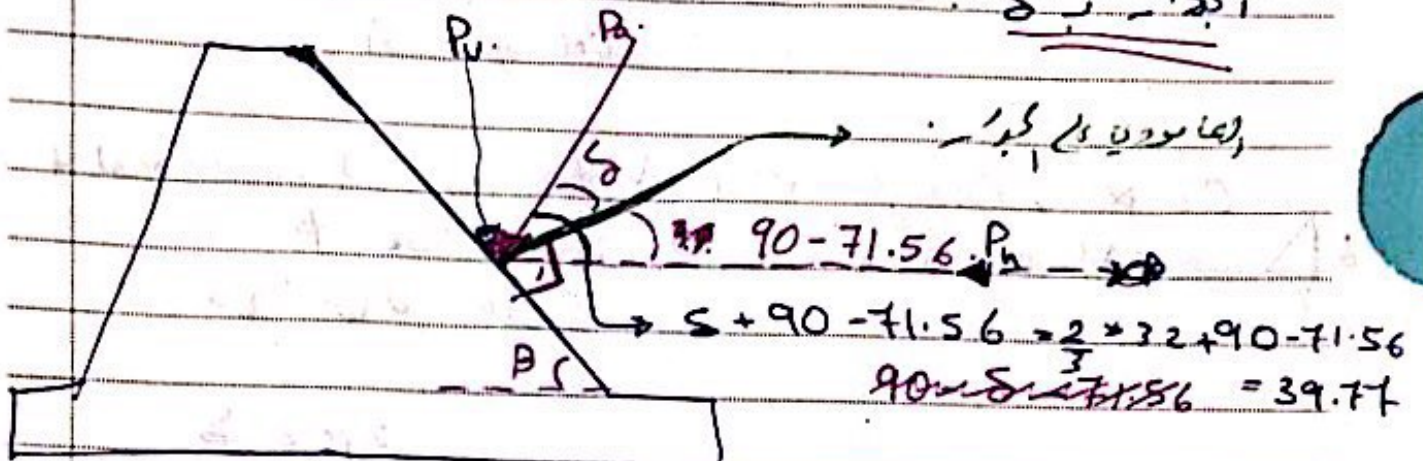 Pv. Pa.
δ
العامودي على الجدار.
90-71.56 Ph
δ + 90 -71.56 = 2/3 * 32 + 90-71.56
β
90-δ-71.56 = 39.77